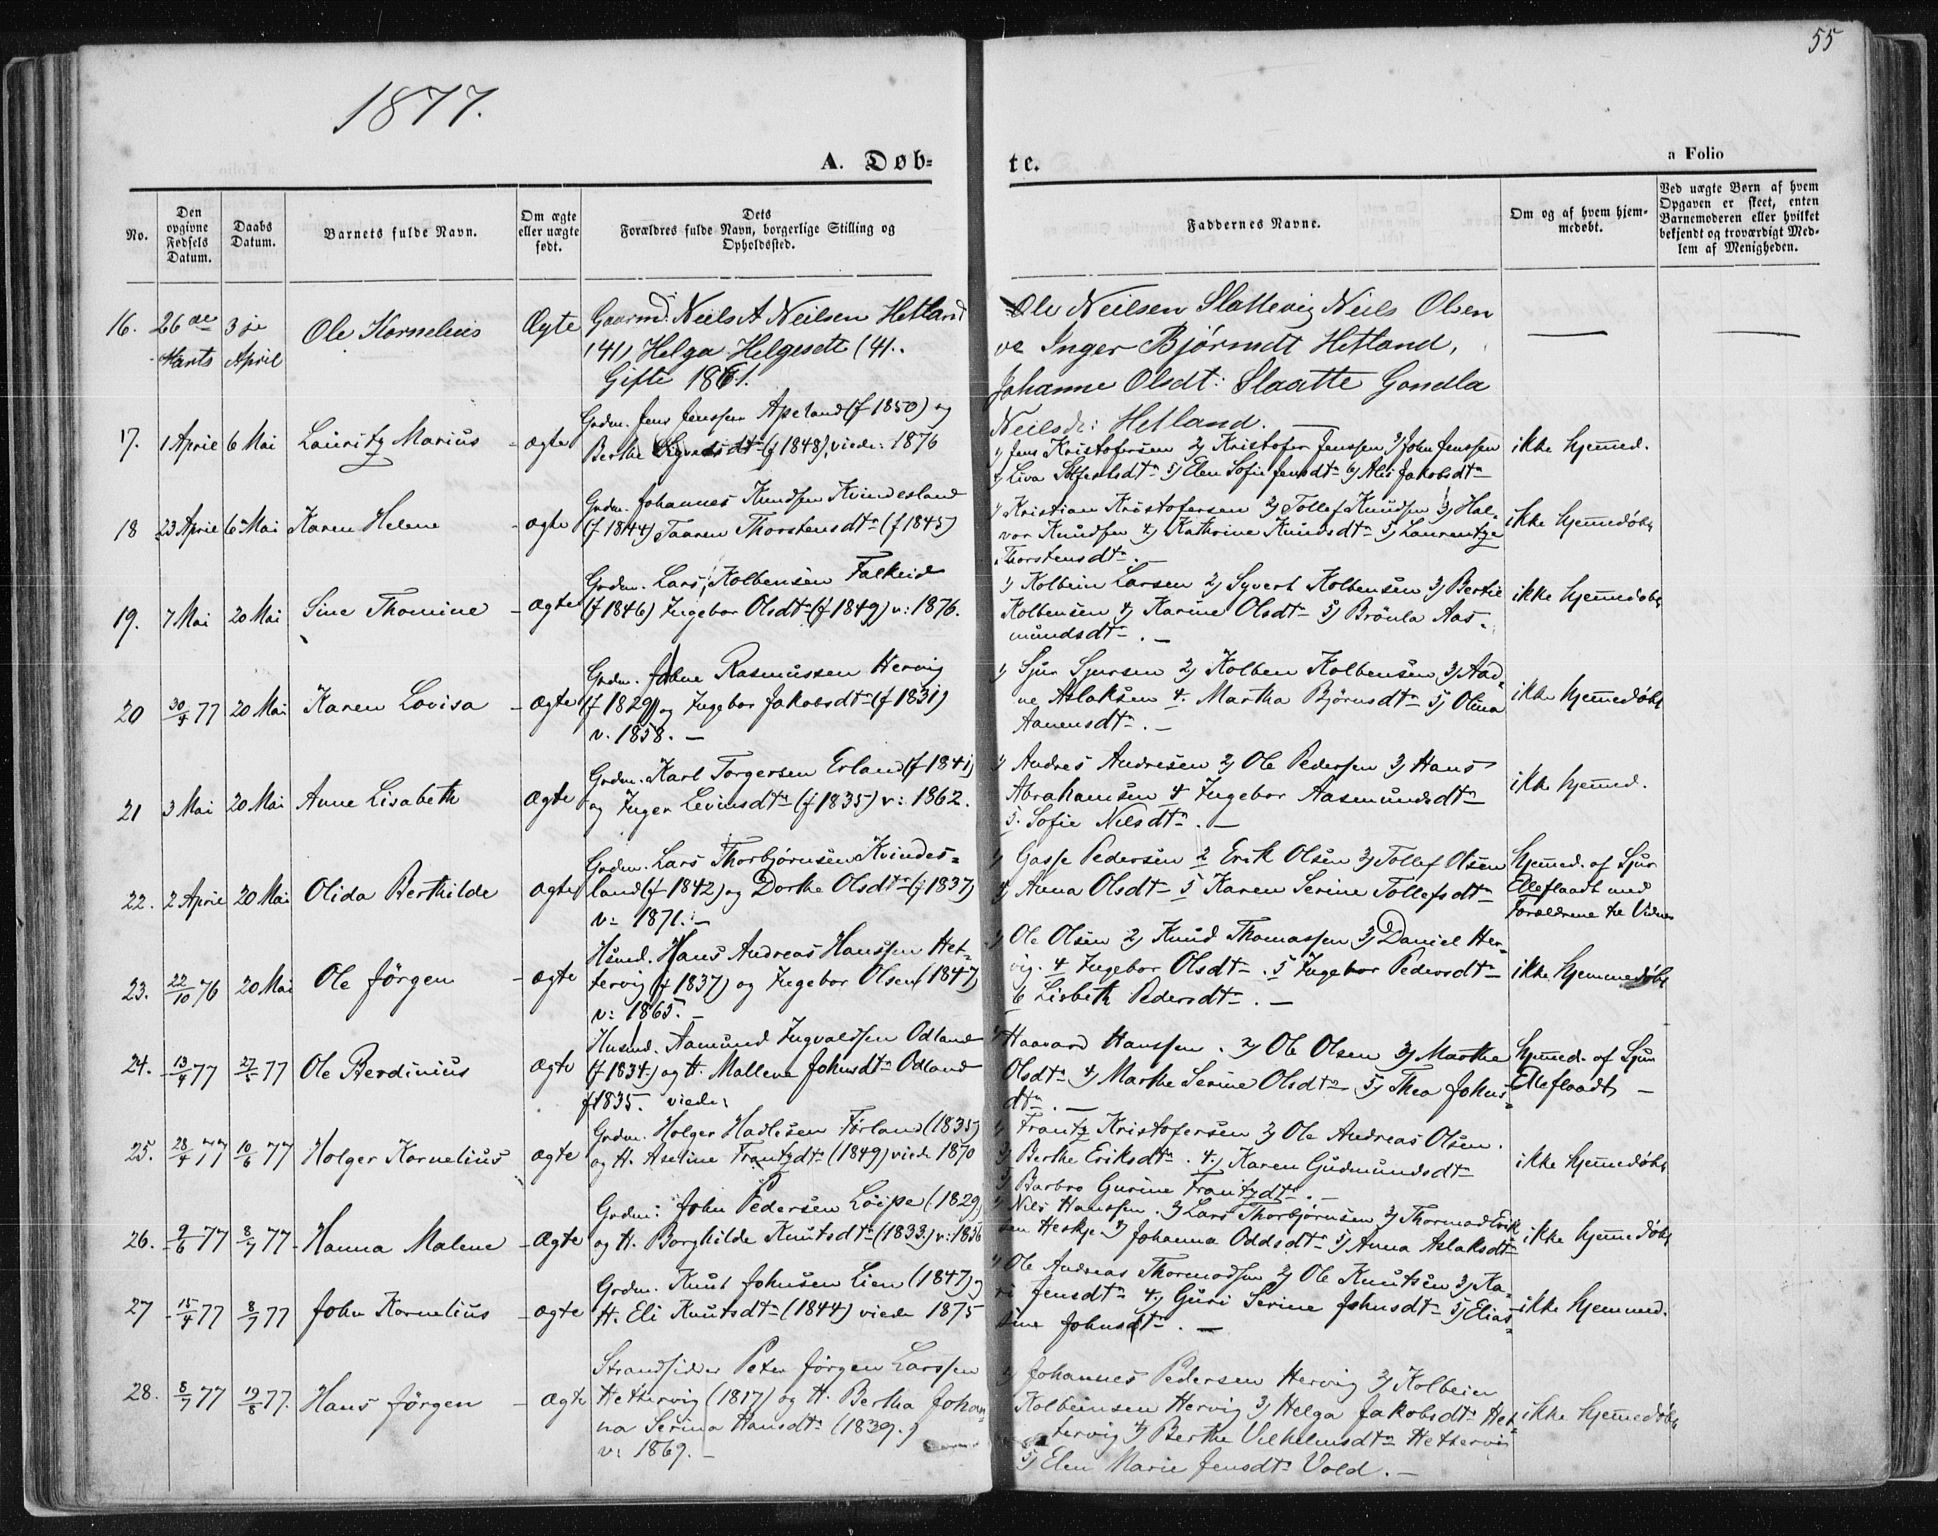 55
1877.
A. Døb=
te.
a Folio
No.
Den opgivne Fødsels Datum.
Daabs Datum.
Barnets fulde Navn.
Om ægte eller uægte født.
Dets Forældres fulde Navn, borgerlige Stilling og Opholdssted.
Faddernes Navne.
Om og af hvem hjem-
medøbt.
Ved uægte Børn af hvem
Opgaven er skeet, enten
Barnemoderen eller hvilket
bekjendt og troværdigt Med-
lem af Menigheden.
16. 26de Marts 3je April Ole Kornelius Ægte
Gaarmd. Neils A Neilsen Hetland
(41) Helga Helgesdt (41.
Gifte 1861.
Ole Neilsen Slattevig Neils Olsen
Inger Bjørnsdt Hetland,
Johanne Olsdt: Slaatte Gondla
Neilsdt: Hetland. —
17. 1 April 6 Mai Lauritz Marius - ægte
Grdm. Jens Jenssen Apeland (f 1850) og
Berthe Sigvardsdtr (f 1848), viede: 1876
1) Jens Kristofersen 2) Kristofer Jenssen 3) John Jenssen
4) Liva dtr 5) Elen Sofie Jensdtr 6) Alis Jakobsdtr
ikke hjemmed.
18 23 April 6 Mai Karen Helene - ægte
Grdm. Johannes Knudsen Kvindesland
(f 1844) Taaren Thorstensdtr (f 1845)
1) Kristian Kristofersen 2) Tollef Knudsen 3) Hal-
vor Knudsen 4) Kathrine Knudsdtr 5) Laurentze
Thorstensdtr. —
ikke hjemmedøbt
19. 7 Mai 20 Mai Sine Thomine - ægte
Grdm. Lars Kolbensen Falkeid
(f 1846) Ingebor Olsdtr (f 1849) v: 1876.
1) Kolbein Larsen 2) Syvert Kolbensen 3) Bertie
Kolbensen 4) Karine Olsdtr 5) Brönla Aas-
mundsdtr. —
ikke hjemmedøbt
20 30/4 77 20 Mai Karen Lovisa - ægte
Grdm. Rasmussen Hervig
(f 1829) og Ingebor Jakobsdtr (f 1831)
v. 1858. —
1) Sjur Sjursen 2) Kolben Kolbensen 3) Aad-
ne Aslaksen 4. Martha Bjørnsdtr 5) Olena
Aanensdtr. —
ikke hjemmedøbt
21 3 Mai 20 Mai Anne Lisabeth ægte
Grdm. Karl Torgersen Erland (f 1841)
og Inger Levinsdtr (f 1835) v: 1862.
1) Andres Andresen 2) Ole Pedersen 3) Hans
Abrahamsen 4 Ingebor Aasmundsdtr
5. Sofie Nilsdtr. —
ikke hjemmed.
22. 2 April 20 Mai Olida Berthilde ægte
Grdm. Lars Thorbjørnsen Kvindes=
land (f 1842) og Dorthe Olsdtr (f 1837)
v: 1871. —
1) Gasse Pedersen 2 Erik Olsen 3) Tollef Olsen
4) Anna Olsdtr 5 Karen Serine Tollefsdtr
hjemmed. af Sjur
Elleflaadt med
Forældrene til Vidner
23. 22/10 76 20 Mai Ole Jörgen - ægte
Husmd. Hans Andreas Hanssen Het-
tervig (f 1837) og Ingebor Olsen (1847)
v: 1865. —
1) Ole Olsen 2) Knud Thomassen 3) Daniel Her-
vig. 4 Ingebor Olsdtr. 5 Ingebor Pedersdtr
6 Lisbeth Pedersdtr. —
ikke hjemmedøbt
24. 13/4 77 27/5 77 Ole Berdinius ægte
Husmd. Aamund Ingvaldsen Odland
(f 1834) og H. Mallene Johnsdtr Odland
f1835. viede:
1) Haavard Hanssen. 2) Ole Olsen 3) Marthe
Olsdtr 4) Marthe Serine Olsdtr 5) Thea Johns-
dtr. —
hjemmed. af Sjur
Elleflaadt —
25. 28/4 77 10/6 77 Holger Kornelius ægte
Grdm. Holger Hadlesen Førland (1835)
og H. Aseline Frantzdtr (1849) viede 1870
1) Frantz Kristofersen 2) Ole Andreas Olsen.
3) Berthe Eriksdtr. 4) Karen Gudmundsdtr
5) Barbro Gurine Frantzdtr. —
ikke hjemmedøbt
26. 9/6 77 8/7 77 Hanna Malene - ægte
Grdm: John Pedersen Löipe (1829)
og H. Borghilde Knutsdtr (1833) v: 1856
1) Nils Hanssen. 2) Lars Thorbjørnsen 3) Thormod Erik
sen Heskje 4) Johanna Oddsdtr 5) Anna Aslaksdtr
ikke hjemmedøbt
27 15/4 77 8/7 77 John Kornelius - ægte
Grdm. Knut Johnsen Lien (1847) og
H. Eli Knutsdtr (1844) viede 1875
1) Ole Andreas Thormodsen 2) Ole Knutsen 3) Ka-
ri Jensdtr 4) Guri Serine Johnsdtr 5) Elias-
sine Johnsdtr. —
ikke hjemmed.
28. 8/7 77 19/8 77. Hans Jörgen - ægte
Strandsidder Peter Jörgen Larssen
Hettervig (1817) og H. Bertha Johan-
na Serina Hansdtr (1839.)
v: 1869. —
1) Johannes Pedersen Hervig 2) Kolbein
Kolbeinsen Hervig 3) Helga Jakobsdtr Het-
tervig 4) Berthe Vilhelmsdtr Hettervig
5) Elen Marie Jensdtr Vold. —
ikke hjemmedøbt